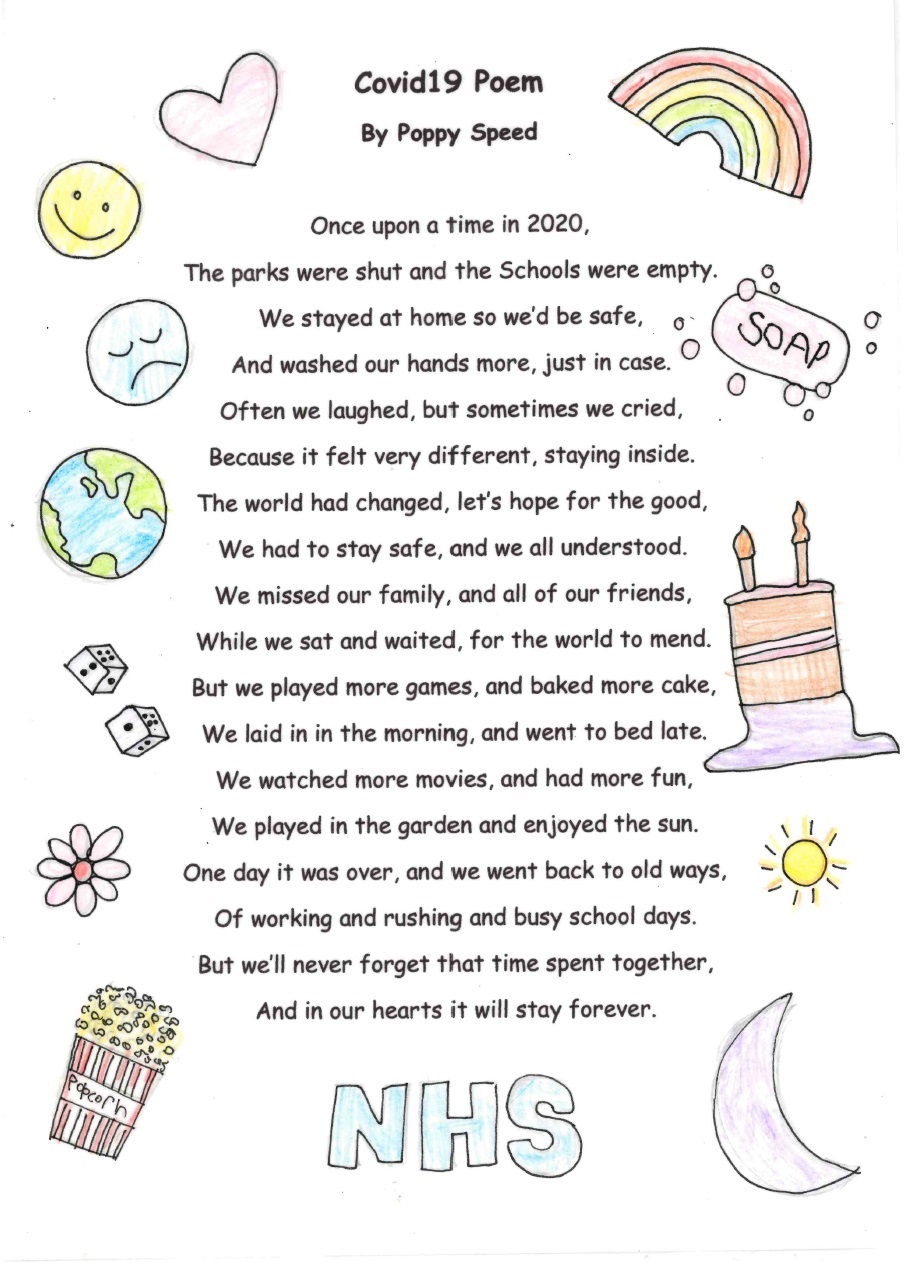 Covid19 Poem
By Poppy Speed
Once upon a time in 2020,
The parks were shut and the Schools were empty.
We stayed at home so we'd be safe,
SOAP
And washed our hands more, just in case.
Often we laughed, but sometimes we cried,
Because it felt very different, staying inside.
The world had changed, let's hope for the good,
We had to stay safe, and we all understood.
We missed our family, and all of our friends,
While we sat and waited, for the world to mend.
But we played more games, and baked more cake,
We laid in in the morning, and went to bed late.
We watched more movies, and had more fun,
We played in the garden and enjoyed the sun.
One day it was over, and we went back to old ways,
Of working and rushing and busy school days.
But we'll never forget that time spent together,
And in our hearts it will stay forever.
Popcorn
NHS